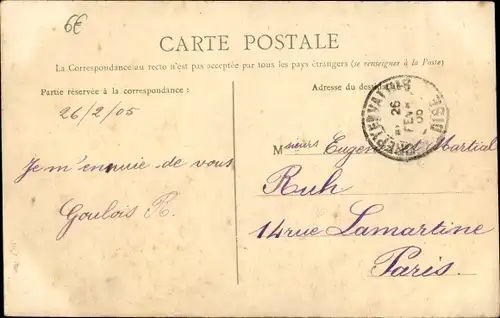 6€
CARTE POSTALE
La Correspondance au recto n'est pas acceptée par tous les pays étrangers (se renseigner à la Poste)
Partie réservée à la correspondance :
Adresse du destinataire
26/2/05
26
FEVR
05
OISE
Msieurs Eugene et Martial
Je m'ennuie de vous
Ruh
Goulois R.
14 rue Lamartine
Paris.